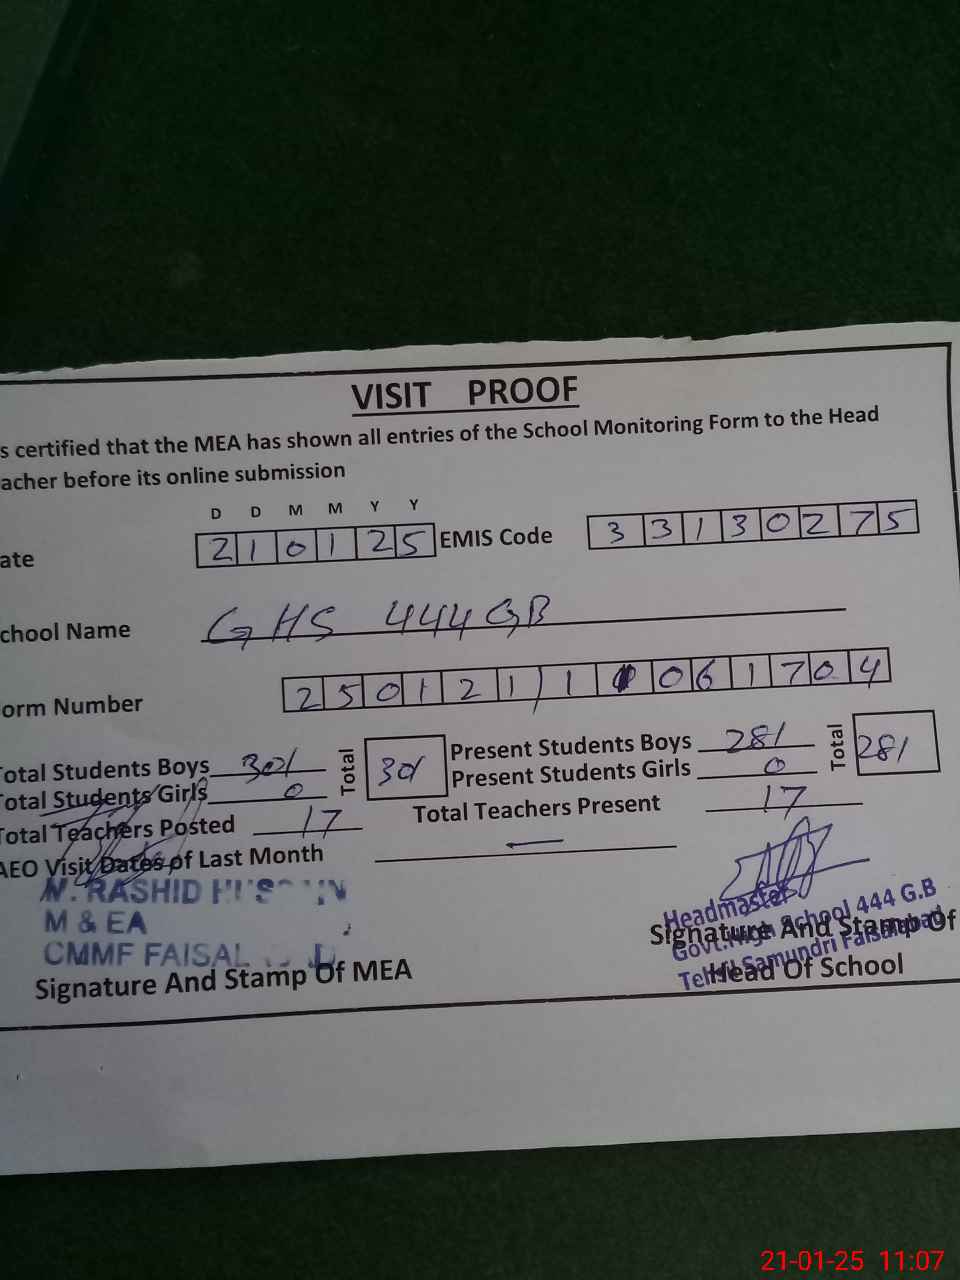 VISIT PROOF
s certified that the MEA has shown all entries of the School Monitoring Form to the Head
acher before its online submission
D D M M Y Y
ate 2 1 0 1 2 5 EMIS Code 3 3 1 3 0 2 7 5
chool Name GHS 444 GB
orm Number 2 5 0 1 2 1 1 1 0 6 1 7 0 4
otal Students Boys 301 Total 301 Present Students Boys 281 Total 281
otal Students Girls 0 Present Students Girls 0
otal Teachers Posted 17 Total Teachers Present 17
AEO Visit Dates of Last Month —
M. RASHID
M & EA
CMMF FAISAL
Signature And Stamp Of MEA
Headmaster
Govt. High School 444 G.B
Tehsil Samundri Faisalabad
Signature And Stamp Of
Head Of School
21-01-25 11:07